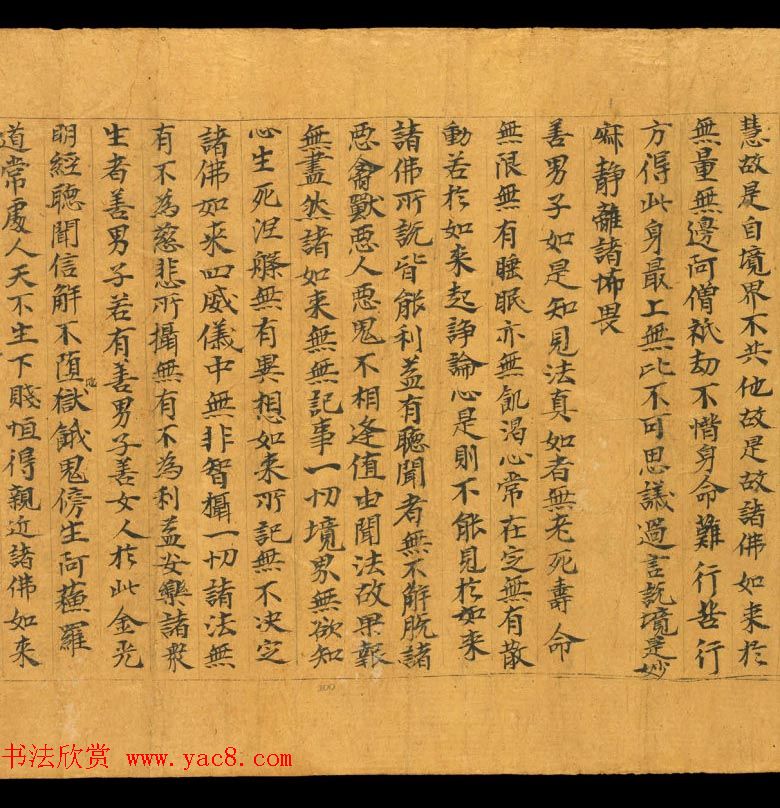 慧故是自境界不共他故是故諸佛如来於
無量無邊阿僧祇劫不惜身命難行苦行
方得此身最上無比不可思議過言說境是妙
寂静離諸怖畏
善男子如是知見法真如者無老死壽命
無限無有睡眠亦無飢渴心常在定無有散
動若於如来起諍論心是則不能見於如来
諸佛所說皆能利益有聽聞者無不解脫諸
惡禽獸惡人惡鬼不相逢值由聞法故果報
無盡然諸如来無無記事一切境界無欲知
心生死涅槃無有異想如来所記無不決定
諸佛如来四威儀中無非智攝一切諸法無
有不為慈悲所攝無有不為利益安樂諸衆
生者善男子若有善男子善女人於此金光
明經聽聞信解不墮地獄餓鬼傍生阿蘓羅
道常處人天不生下賤恒得親近諸佛如来
100
书法欣赏 www.yac8.com